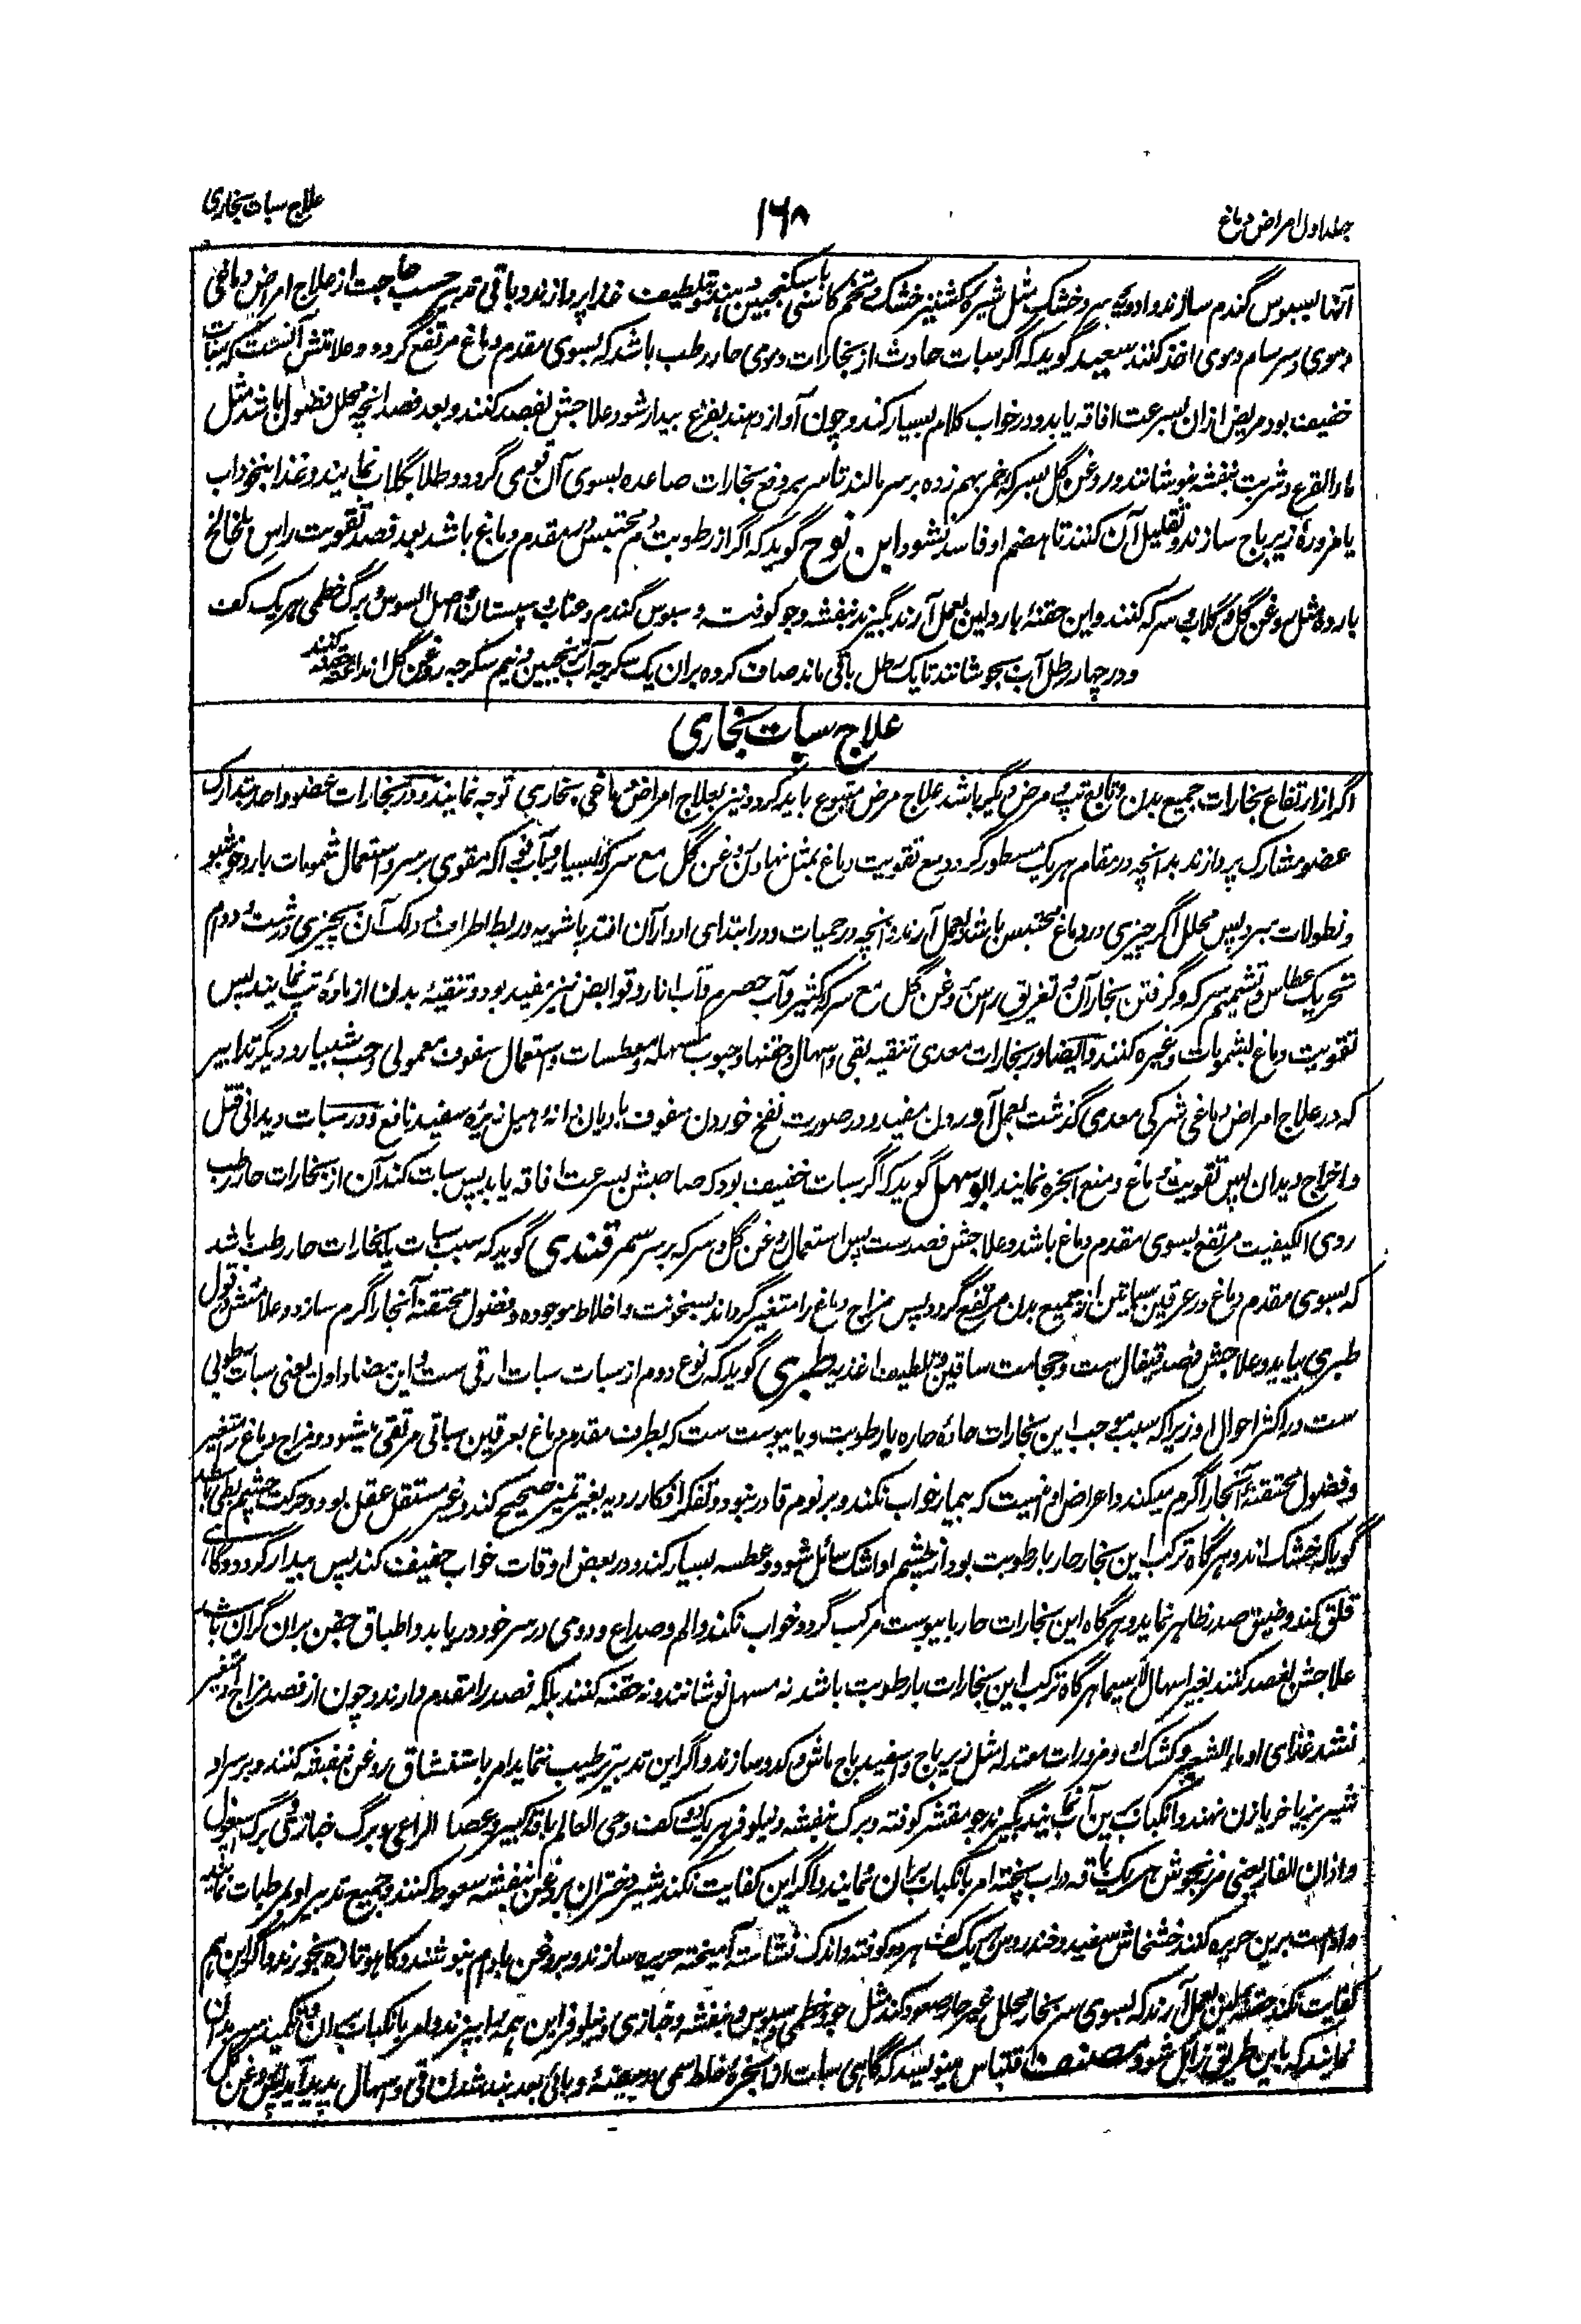 جلد اول امراض دماغ
۱۶۸
علاج سبات بخاری
آنها بسبوس گندم سازند و ادویه سرد خشک مثل شیره کشنیز خشک و تخم کاسنی با سکنجبین دهند و تلطیف غذا پردازند و باقی تدبیر حسب حاجت از علاج امراض دماغی
دموی و سرسام دموی اخذ کنند سعید گوید که اگر سبات حادث از بخارات دموی حار رطب باشد که بسوی مقدم دماغ مرتفع گردد و علامتش آنست که سبات
خفیف بود مریض ازان بسرعت افاقه یابد و در خواب کلام بسیار کند و چون آواز دهند بفزع بیدار شود علاجش بفصد کنند و بعد فصد انچه محلل فضول باشد مثل
ماء القرع و شربت بنفشه بنوشانند و روغن گل بسرکه خمر بهم زده بر سر مالند تا سر بر دفع بخارات صاعده بسوی آن قوی گردد و طلا بگلاب نمایند و غذا بنخوداب
یا مزوره زیرباج سازند و تقلیل آن کنند تا هضم او فاسد نشود ابن نوح گوید که اگر از رطوبت دم محتبس بمقدم دماغ باشد بعد فصد تقویت راس بلخالخ
بارده مثل روغن گل و گلاب و سرکه کنند و این حقنه بارد لین بعمل آرند بگیرند بنفشه و جو کوفته و سبوس گندم و عناب و سپستان و اصل السوس و برگ خطمی هر یک کف
و در چهار رطل آب بجوشانند تا یک رطل باقی ماند صاف کرده بران یک سکرجه آب ترنجبین و نیم سکرجه روغن گل انداخته حقنه کنند
علاج سبات بخاری
اگر از ارتفاع بخارات جمیع بدن و تابع تپ و مرض دیگر باشد علاج مرض متبوع باید کرد و نیز بعلاج امراض دماغی بخاری توجه نمایند و در بخارات عضو واحد بتدارک
عضو مشارک پردازند بدانچه در مقام هر یک مسطور گردد مع تقویت دماغ بمثل نهادن روغن گل مع سرکه بسیار و آب فواکه مقوی بر سر و استعمال شمومات بارد خوشبو
و نطولات مبرد پس محلل اگر چیزی در دماغ محتبس باشد بعمل آرند و آنچه در حمیات و در ابتدای ادوار آن افتد پاشویه و ربط اطراف و دلک آن بچیزی درشت و دوام
تحریک عطاس و تشمیم سرکه و گرفتن بخار آن و تغریق راس روغن گل مع سرکه کثیر و آب حصرم و آب انار و قوابض نیز مفید بود و تنقیه بدن از ماده تپ نمایند پس
تقویت دماغ بشمومات وغیره کنند و ایضا در بخارات معدی تنقیه بقی و اسهال و حقنها و حبوب مسهله و معطسات و استعمال سفوف معمولی و حب شبیار و دیگر تدابیر
که در علاج امراض دماغی شرکی معدی گذشت بعمل آوردن مفید و در صورت نفخ خوردن سفوف بادیان دانه هیل زیره سفید نافع و در سبات دیدانی قتل
و اخراج دیدان پس تقویت دماغ و منع ابخره نمایند ابوسهل گوید که اگر سبات خفیف بود که صاحبش بسرعت افاقه یابد پس سبات کند آن از بخارات حار رطب
ردی الکیفیت مرتفع بسوی مقدم دماغ باشد و علاجش فصدست پس استعمال روغن گل و سرکه بر سر سمرقندی گوید که سبب سبات یا بخارات حار رطب باشد
که بسوی مقدم دماغ در عرقین سباتین از جمیع بدن مرتفع گردد پس مزاج دماغ را متغیر گرداند بسخونت و اخلاط موجوده و فضول محتقنه آنجا را گرم سازد و علامتش در قول
طبری بیاید و علاجش فصد قیفال ست و حجامت ساقین و تلطیف اغذیه طبری گوید که نوع دوم از سبات سبات ارقی ست و این مضاد اول یعنی سبات طویل
ست در اکثر احوال او زیرا که سبب موجب این بخارات حاده حاره یا رطوبت و یا یبوست ست که بطرف مقدم دماغ بعرقین سباتی مرتقی میشود و مزاج دماغ را متغیر
و فضول محتقنه آنجا را گرم میکند و اعراض او اینست که بیمار خواب نکند و بر نوم قادر نبود و تفکر افکار ردیه بغیر تمیز صحیح کند و غیر مستقل عقل بود و حرکت چشم بطی باشد
گویا که خشک اند و هرگاه ترکب این بخار حار با رطوبت بود از چشم او اشک سائل شود و عطسه بسیار کند و در بعض اوقات خواب خفیف کند پس بیدار گردد و گاهی
قلق کند و ضیق صدر ظاهر نماید و هرگاه این بخارات حار با یبوست مرکب گردد خواب نکند و الم و صداع و دوی در سر خود دریابد و اطباق جفن بران گران باشد
علاجش بفصد کنند بغیر اسهال لا سیما هرگاه ترکب این بخارات با رطوبت باشد نه مسهل نوشانند و نه حقنه کنند بلکه فصد را مقدم دارند و چون از فصد مزاج او متغیر
نشد غذای او ماء الشعیر و کشک و مزورات معتدله مثل زیرباج و اسفیدباج ماش و کدو سازند و اگر این تدبیر ترطیب ننماید امر باستنشاق روغن بنفشه کنند و بر سر او
شیر بز یا خر یا زن نهند و انکباب بین آن نمایند بگیرند جو مقشر کوفته و برگ بنفشه و نیلوفر هر یک دو کف و حی العالم باقه کبیر و عصا الراعی و برگ خبازی و برگ اسپغول
و اذان الفار یعنی مرزنجوش هر یک باقه در آب پخته امر بانکباب بران نمایند و اگر این کفایت نکند شیر دختران بروغن بنفشه سعوط کنند و جمیع تدبیر او مرطبات نمایند
و ادمت برین حریره کنند خشخاش سفید و خندروس هر یک کف هر دو کوفته و اندک نشاسته آمیخته حریره سازند و بروغن بادام بنوشند و کاهو تازه بخورند و اگر این هم
کفایت نکند حقنه لین بعمل آرند که بسوی سر بخار محلل غیر حار صعود کند مثل جو و خطمی و سبوس و بنفشه و خبازی و نیلوفر این همه را بپزند و امر بانکباب بران و تکمید سر بدان
نمایند که باین طریق زائل شود و مصنف اقتباس مینویسد که گاهی سبات از ابخره خلط سمی در هیضه و بائی بعد بند شدن قی و اسهال پدید آید پس روغن گل